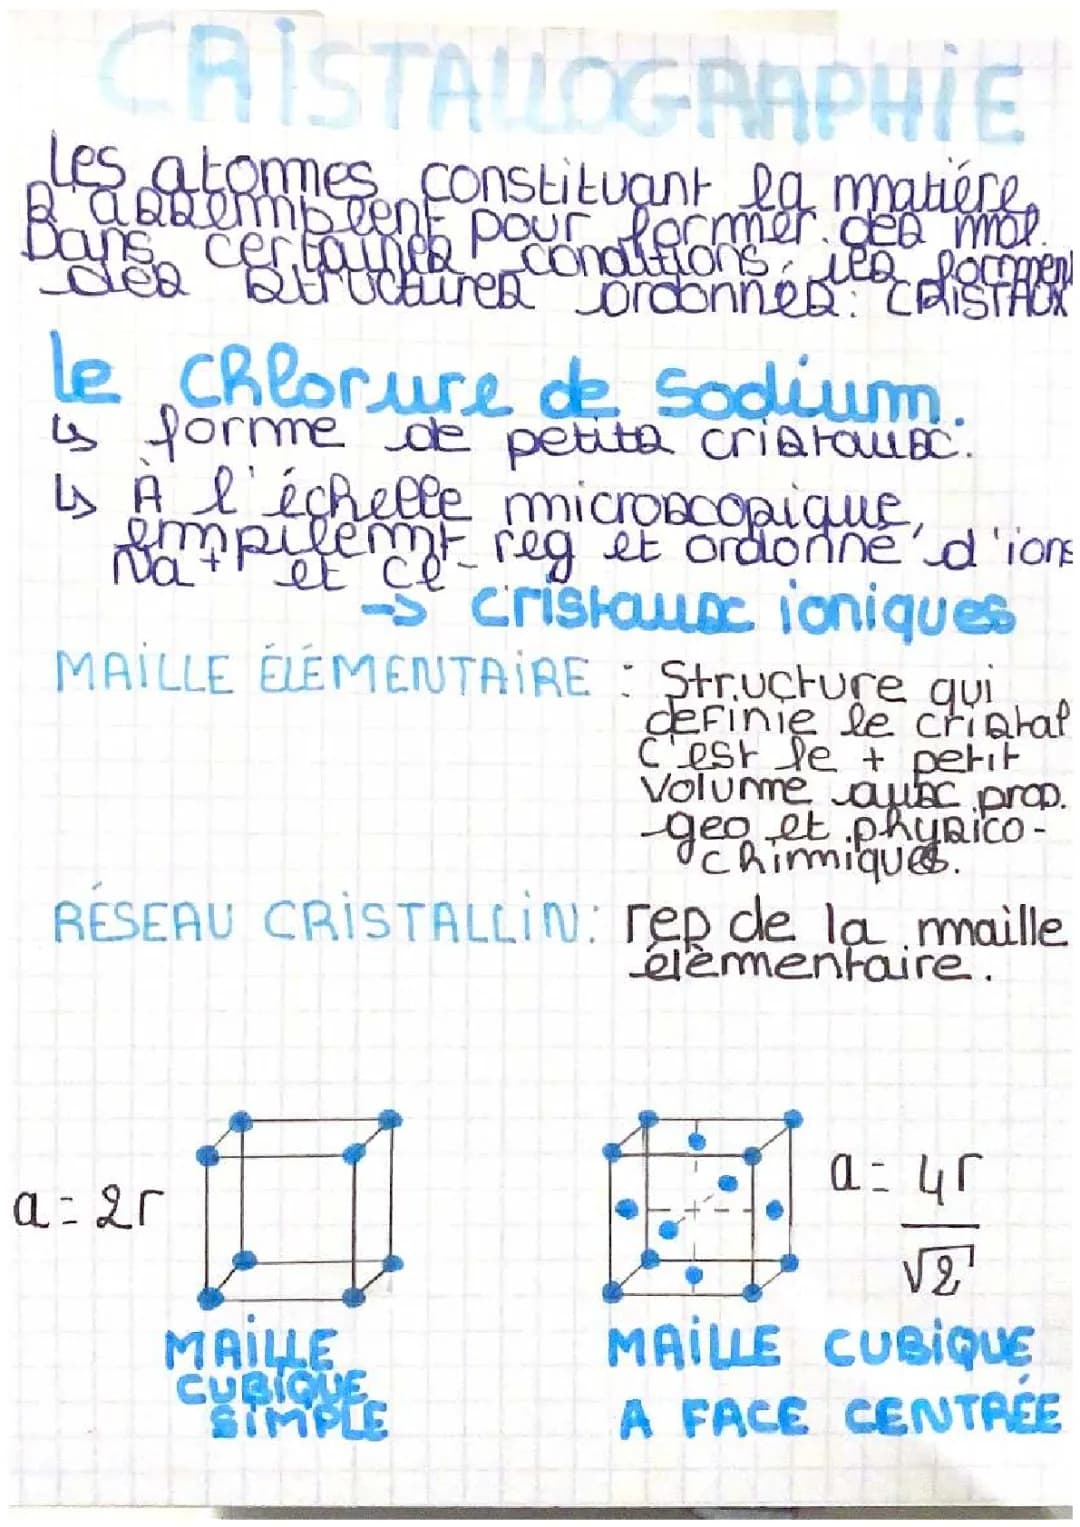 CRISTALLOGRAPHIE
Les atomes constituant la matière
s'assemblent pour former des mol.
Dans certaines conditions, ies forment
des structures ordonnés: CRISTAUX
le chlorure de sodium.
↳ forme de petits cristaux.
↳ À l'échelle microscopique,
empilemt reg et ordonné d'ions
Na+ et Cl-
-> cristaux ioniques
MAILLE ÉLÉMENTAIRE : Structure qui
definie le cristal
C'est le + petit
volume aux prop.
geo et physico-
chimiques.
RÉSEAU CRISTALLIN: rep de la maille
élémentaire.
a = 2r
a = 4r
√2
MAILLE
CUBIQUE
SIMPLE
MAILLE CUBIQUE
A FACE CENTRÉE